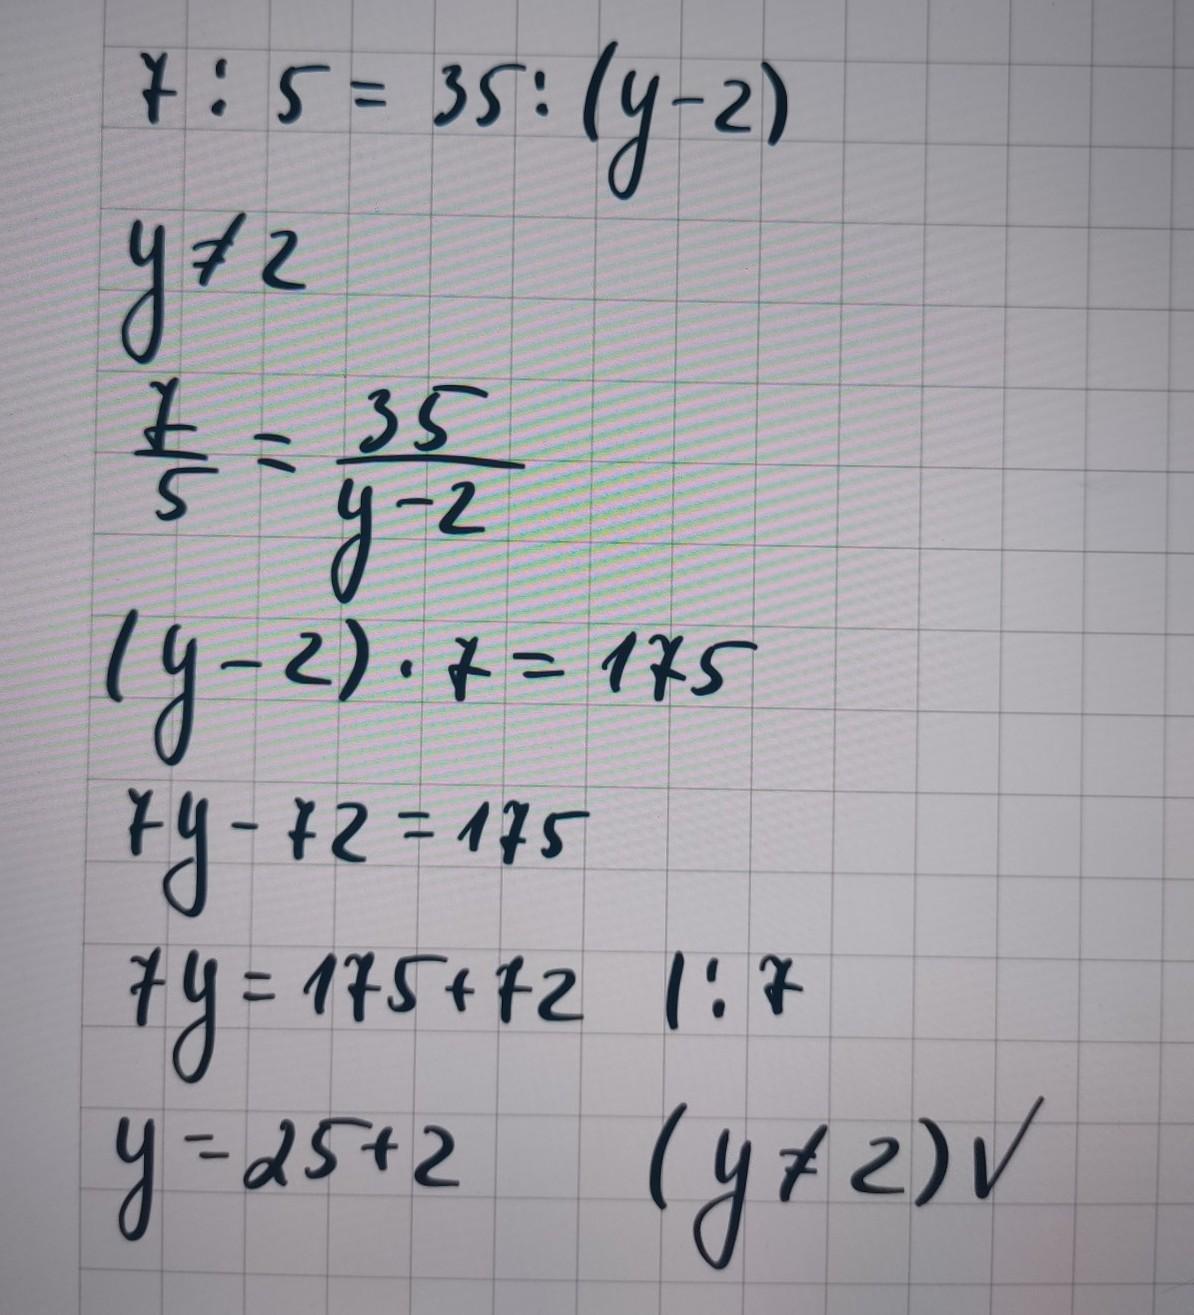 7 : 5 = 35 : (y-2)
y ≠ 2
7/5 = 35/(y-2)
(y-2) · 7 = 175
7y - 72 = 175
7y = 175 + 72 | : 7
y = 25 + 2 (y ≠ 2) ✓